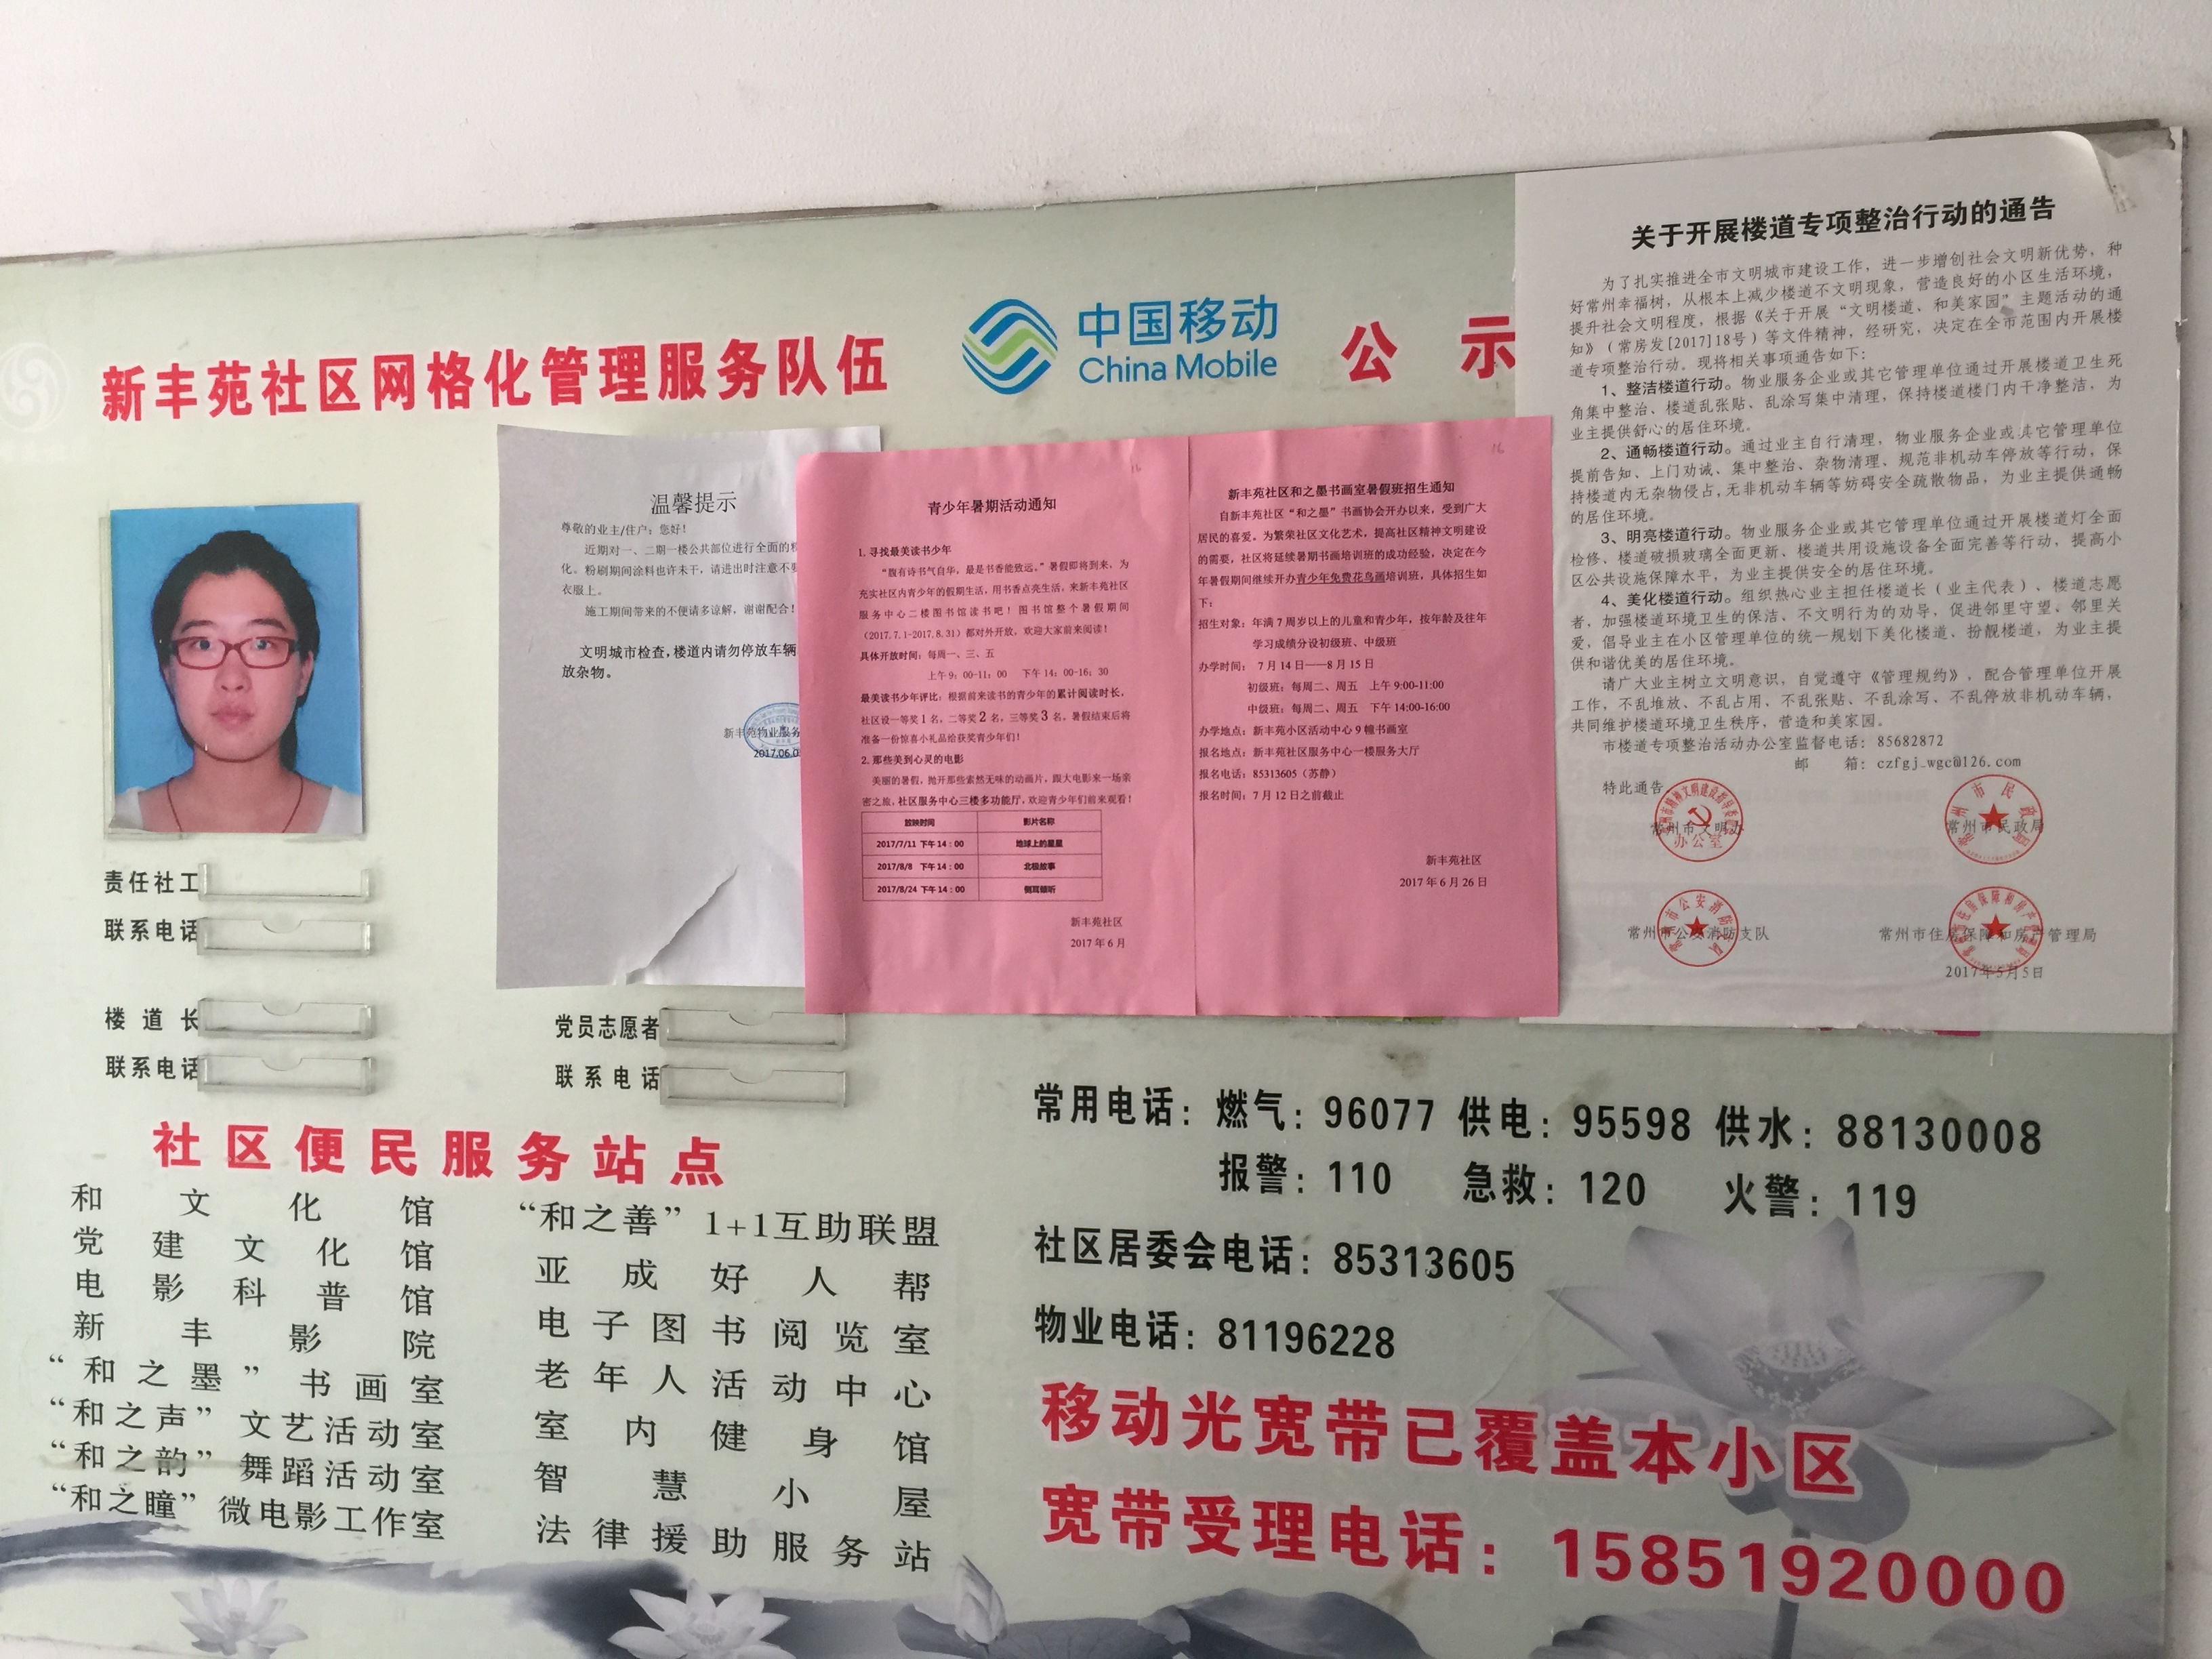 新丰苑社区网格化管理服务队伍
中国移动
China Mobile
公 示
责任社工
联系电话
楼道长
联系电话
党员志愿者
联系电话
温馨提示
尊敬的业主/住户：您好！
近期对一、二期一楼公共部位进行全面的粉
化。粉刷期间涂料也许未干，请进出时注意不要
衣服上。
施工期间带来的不便请多谅解，谢谢配合！
文明城市检查，楼道内请勿停放车辆
放杂物。
新丰苑物业服务
2017.06.0
青少年暑期活动通知
1. 寻找最美读书少年
“腹有诗书气自华，最是书香能致远。”暑假即将到来，为
充实社区内青少年的假期生活，用书香点亮生活，来新丰苑社区
服务中心二楼图书馆读书吧！图书馆整个暑假期间
（2017.7.1-2017.8.31）都对外开放，欢迎大家前来阅读！
具体开放时间：每周一、三、五
上午9：00-11：00 下午14：00-16：30
最美读书少年评比：根据前来读书的青少年的累计阅读时长，
社区设一等奖1名，二等奖2名，三等奖3名，暑假结束后将
准备一份惊喜小礼品给获奖青少年们！
2. 那些美到心灵的电影
美丽的暑假，抛开那些索然无味的动画片，跟大电影来一场亲
密之旅，社区服务中心三楼多功能厅，欢迎青少年们前来观看！
放映时间 影片名称
2017/7/11 下午14：00 地球上的星星
2017/8/8 下午14：00 北极故事
2017/8/24 下午14：00 侧耳倾听
新丰苑社区
2017年6月
16
新丰苑社区和之墨书画室暑假班招生通知
自新丰苑社区“和之墨”书画协会开办以来，受到广大
居民的喜爱。为繁荣社区文化艺术，提高社区精神文明建设
的需要，社区将延续暑期书画培训班的成功经验，决定在今
年暑假期间继续开办青少年免费花鸟画培训班，具体招生如
下：
招生对象：年满7周岁以上的儿童和青少年，按年龄及往年
学习成绩分设初级班、中级班
办学时间：7月14日——8月15日
初级班：每周二、周五 上午9:00-11:00
中级班：每周二、周五 下午14:00-16:00
办学地点：新丰苑小区活动中心9幢书画室
报名地点：新丰苑社区服务中心一楼服务大厅
报名电话：85313605（苏静）
报名时间：7月12日之前截止
新丰苑社区
2017年6月26日
16
关于开展楼道专项整治行动的通告
为了扎实推进全市文明城市建设工作，进一步增创社会文明新优势，种
好常州幸福树，从根本上减少楼道不文明现象，营造良好的小区生活环境，
提升社会文明程度，根据《关于开展“文明楼道、和美家园”主题活动的通
知》（常房发[2017]18号）等文件精神，经研究，决定在全市范围内开展楼
道专项整治行动。现将相关事项通告如下：
1、整洁楼道行动。物业服务企业或其它管理单位通过开展楼道卫生死
角集中整治、楼道乱张贴、乱涂写集中清理，保持楼道楼门内干净整洁，为
业主提供舒心的居住环境。
2、通畅楼道行动。通过业主自行清理，物业服务企业或其它管理单位
提前告知、上门劝诫、集中整治、杂物清理、规范非机动车停放等行动，保
持楼道内无杂物侵占，无非机动车辆等妨碍安全疏散物品，为业主提供通畅
的居住环境。
3、明亮楼道行动。物业服务企业或其它管理单位通过开展楼道灯全面
检修、楼道破损玻璃全面更新、楼道共用设施设备全面完善等行动，提高小
区公共设施保障水平，为业主提供安全的居住环境。
4、美化楼道行动。组织热心业主担任楼道长（业主代表）、楼道志愿
者，加强楼道环境卫生的保洁、不文明行为的劝导，促进邻里守望、邻里关
爱，倡导业主在小区管理单位的统一规划下美化楼道、扮靓楼道，为业主提
供和谐优美的居住环境。
请广大业主树立文明意识，自觉遵守《管理规约》，配合管理单位开展
工作，不乱堆放、不乱占用、不乱张贴、不乱涂写、不乱停放非机动车辆，
共同维护楼道环境卫生秩序，营造和美家园。
市楼道专项整治活动办公室监督电话：85682872
邮 箱：czfgj_wgc@126.com
特此通告
常州市文明办
办公室
常州市民政局
常州市公安消防支队
常州市住房保障和房产管理局
2017年5月5日
社区便民服务站点
和文化馆
党建文化馆
电影科普馆
新丰影院
“和之墨”书画室
“和之声”文艺活动室
“和之韵”舞蹈活动室
“和之瞳”微电影工作室
“和之善”1+1互助联盟
亚成好人帮
电子图书阅览室
老年人活动中心
室内健身馆
智慧小屋
法律援助服务站
常用电话：燃气：96077 供电：95598 供水：88130008
报警：110 急救：120 火警：119
社区居委会电话：85313605
物业电话：81196228
移动光宽带已覆盖本小区
宽带受理电话：15851920000